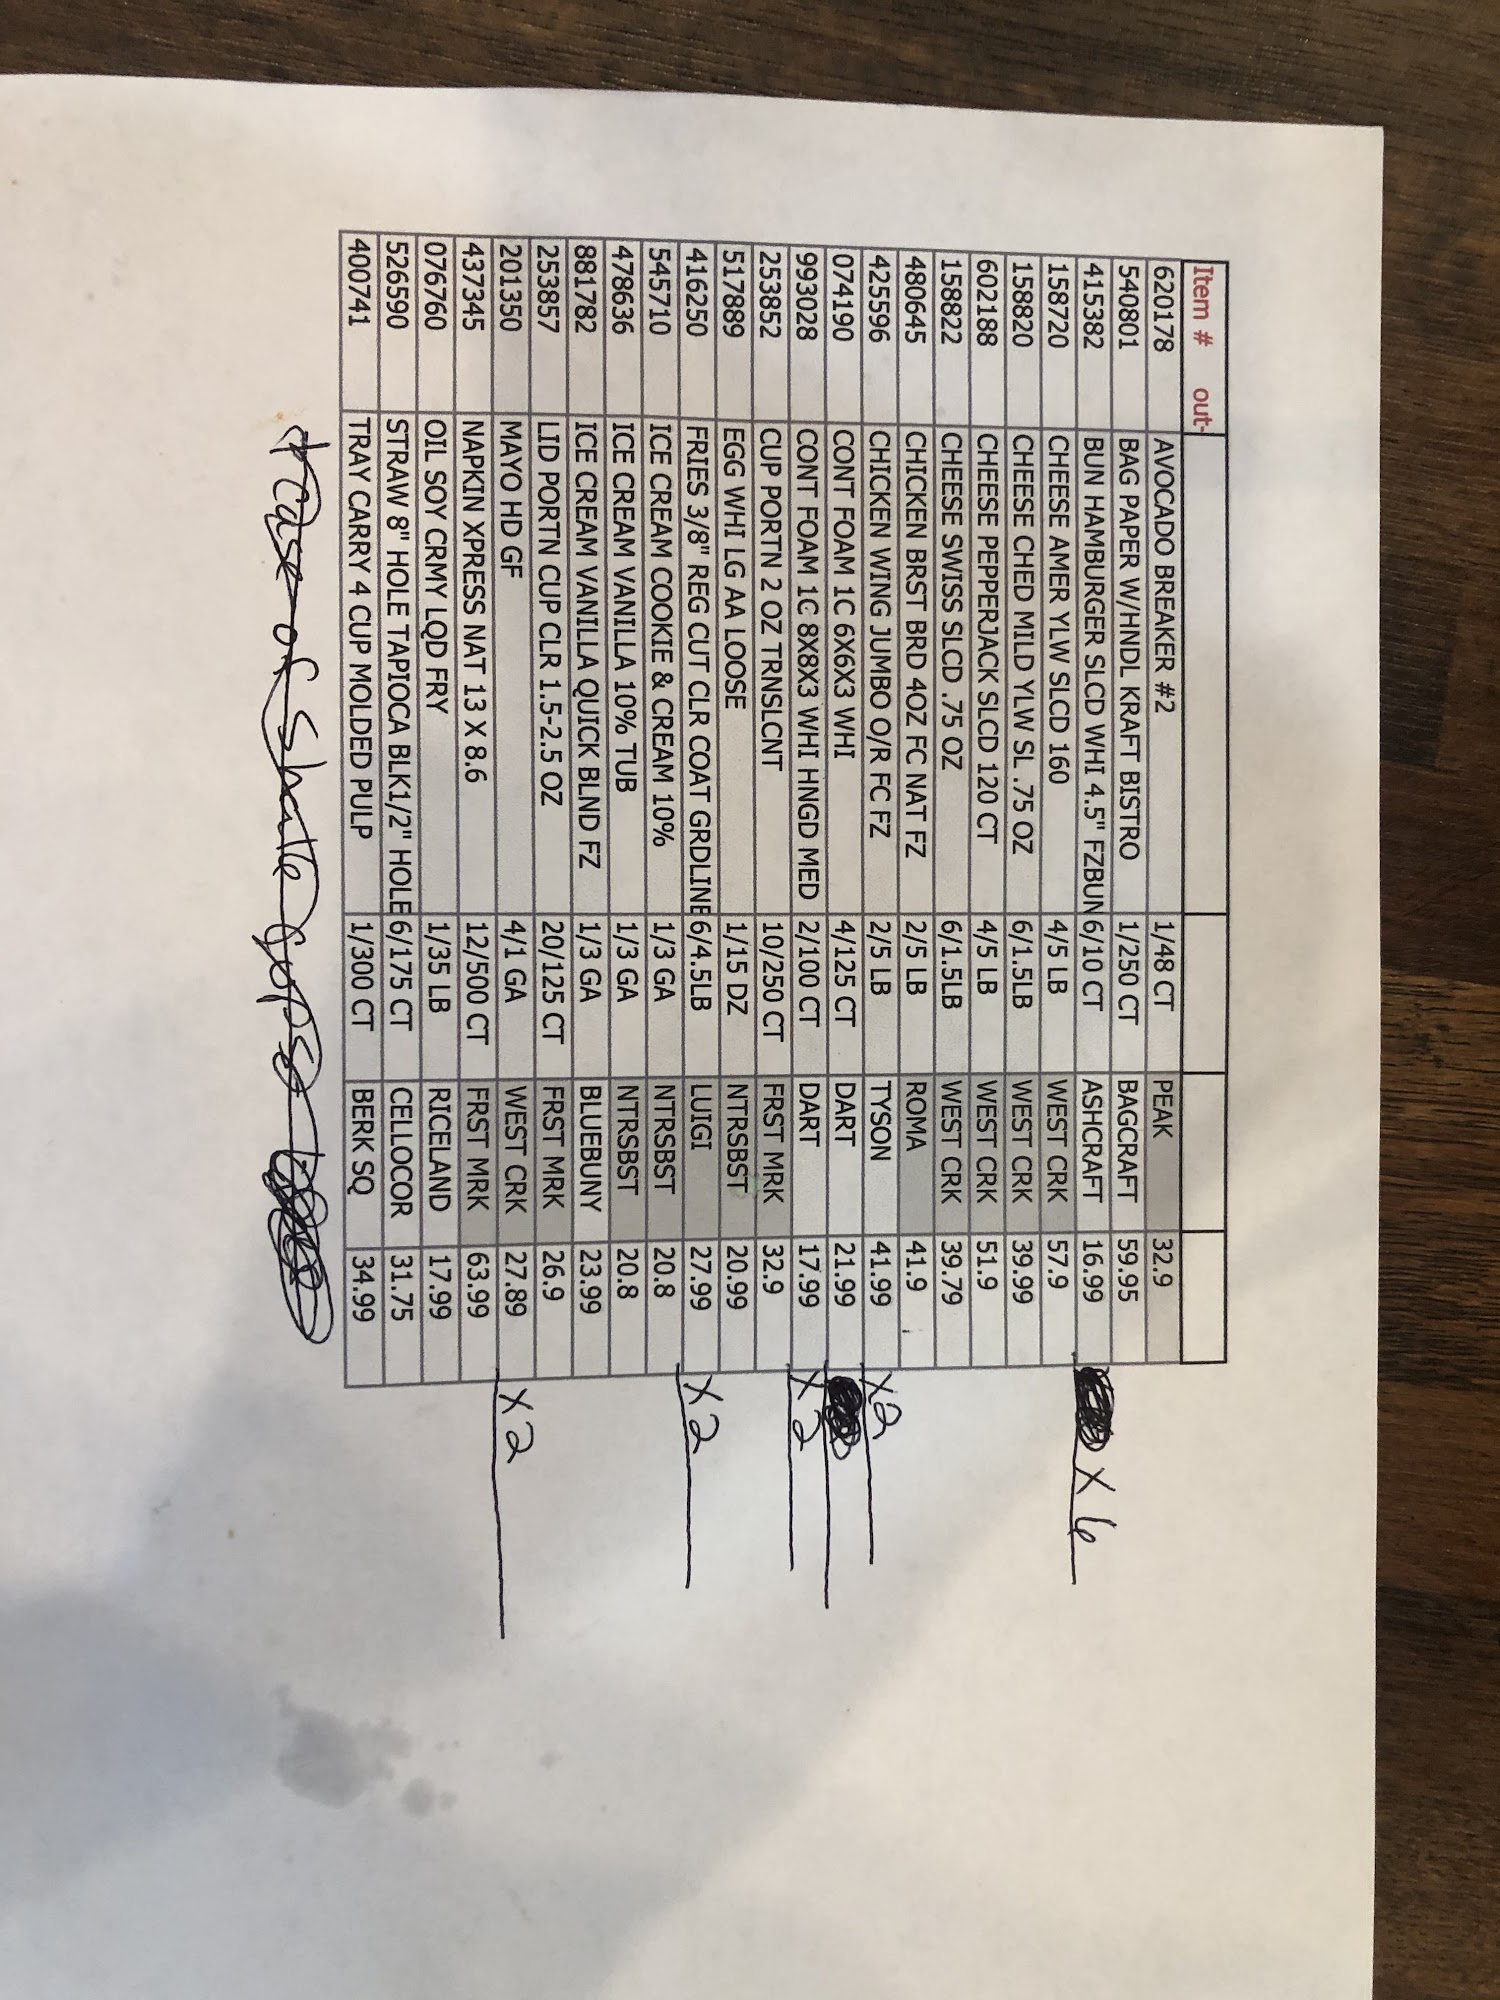 Item # out-
620178 AVOCADO BREAKER #2 1/48 CT PEAK 32.9
540801 BAG PAPER W/HNDL KRAFT BISTRO 1/250 CT BAGCRAFT 59.95
415382 BUN HAMBURGER SLCD WHI 4.5" FZBUN 6/10 CT ASHCRAFT 16.99 X 6
158720 CHEESE AMER YLW SLCD 160 4/5 LB WEST CRK 57.9
158820 CHEESE CHED MILD YLW SL .75 OZ 6/1.5LB WEST CRK 39.99
602188 CHEESE PEPPERJACK SLCD 120 CT 4/5 LB WEST CRK 51.9
158822 CHEESE SWISS SLCD .75 OZ 6/1.5LB WEST CRK 39.79
480645 CHICKEN BRST BRD 4OZ FC NAT FZ 2/5 LB ROMA 41.9
425596 CHICKEN WING JUMBO O/R FC FZ 2/5 LB TYSON 41.99 X2
074190 CONT FOAM 1C 6X6X3 WHI 4/125 CT DART 21.99
993028 CONT FOAM 1C 8X8X3 WHI HNGD MED 2/100 CT DART 17.99 X2
253852 CUP PORTN 2 OZ TRNSLCNT 10/250 CT FRST MRK 32.9
517889 EGG WHI LG AA LOOSE 1/15 DZ NTRSBST 20.99
416250 FRIES 3/8" REG CUT CLR COAT GRDLINE 6/4.5LB LUIGI 27.99 X2
545710 ICE CREAM COOKIE & CREAM 10% 1/3 GA NTRSBST 20.8
478636 ICE CREAM VANILLA 10% TUB 1/3 GA NTRSBST 20.8
881782 ICE CREAM VANILLA QUICK BLND FZ 1/3 GA BLUEBUNY 23.99
253857 LID PORTN CUP CLR 1.5-2.5 OZ 20/125 CT FRST MRK 26.9
201350 MAYO HD GF 4/1 GA WEST CRK 27.89 X2
437345 NAPKIN XPRESS NAT 13 X 8.6 12/500 CT FRST MRK 63.99
076760 OIL SOY CRMY LQD FRY 1/35 LB RICELAND 17.99
526590 STRAW 8" HOLE TAPIOCA BLK1/2" HOLE 6/175 CT CELLOCOR 31.75
400741 TRAY CARRY 4 CUP MOLDED PULP 1/300 CT BERK SQ 34.99
Case of Shake